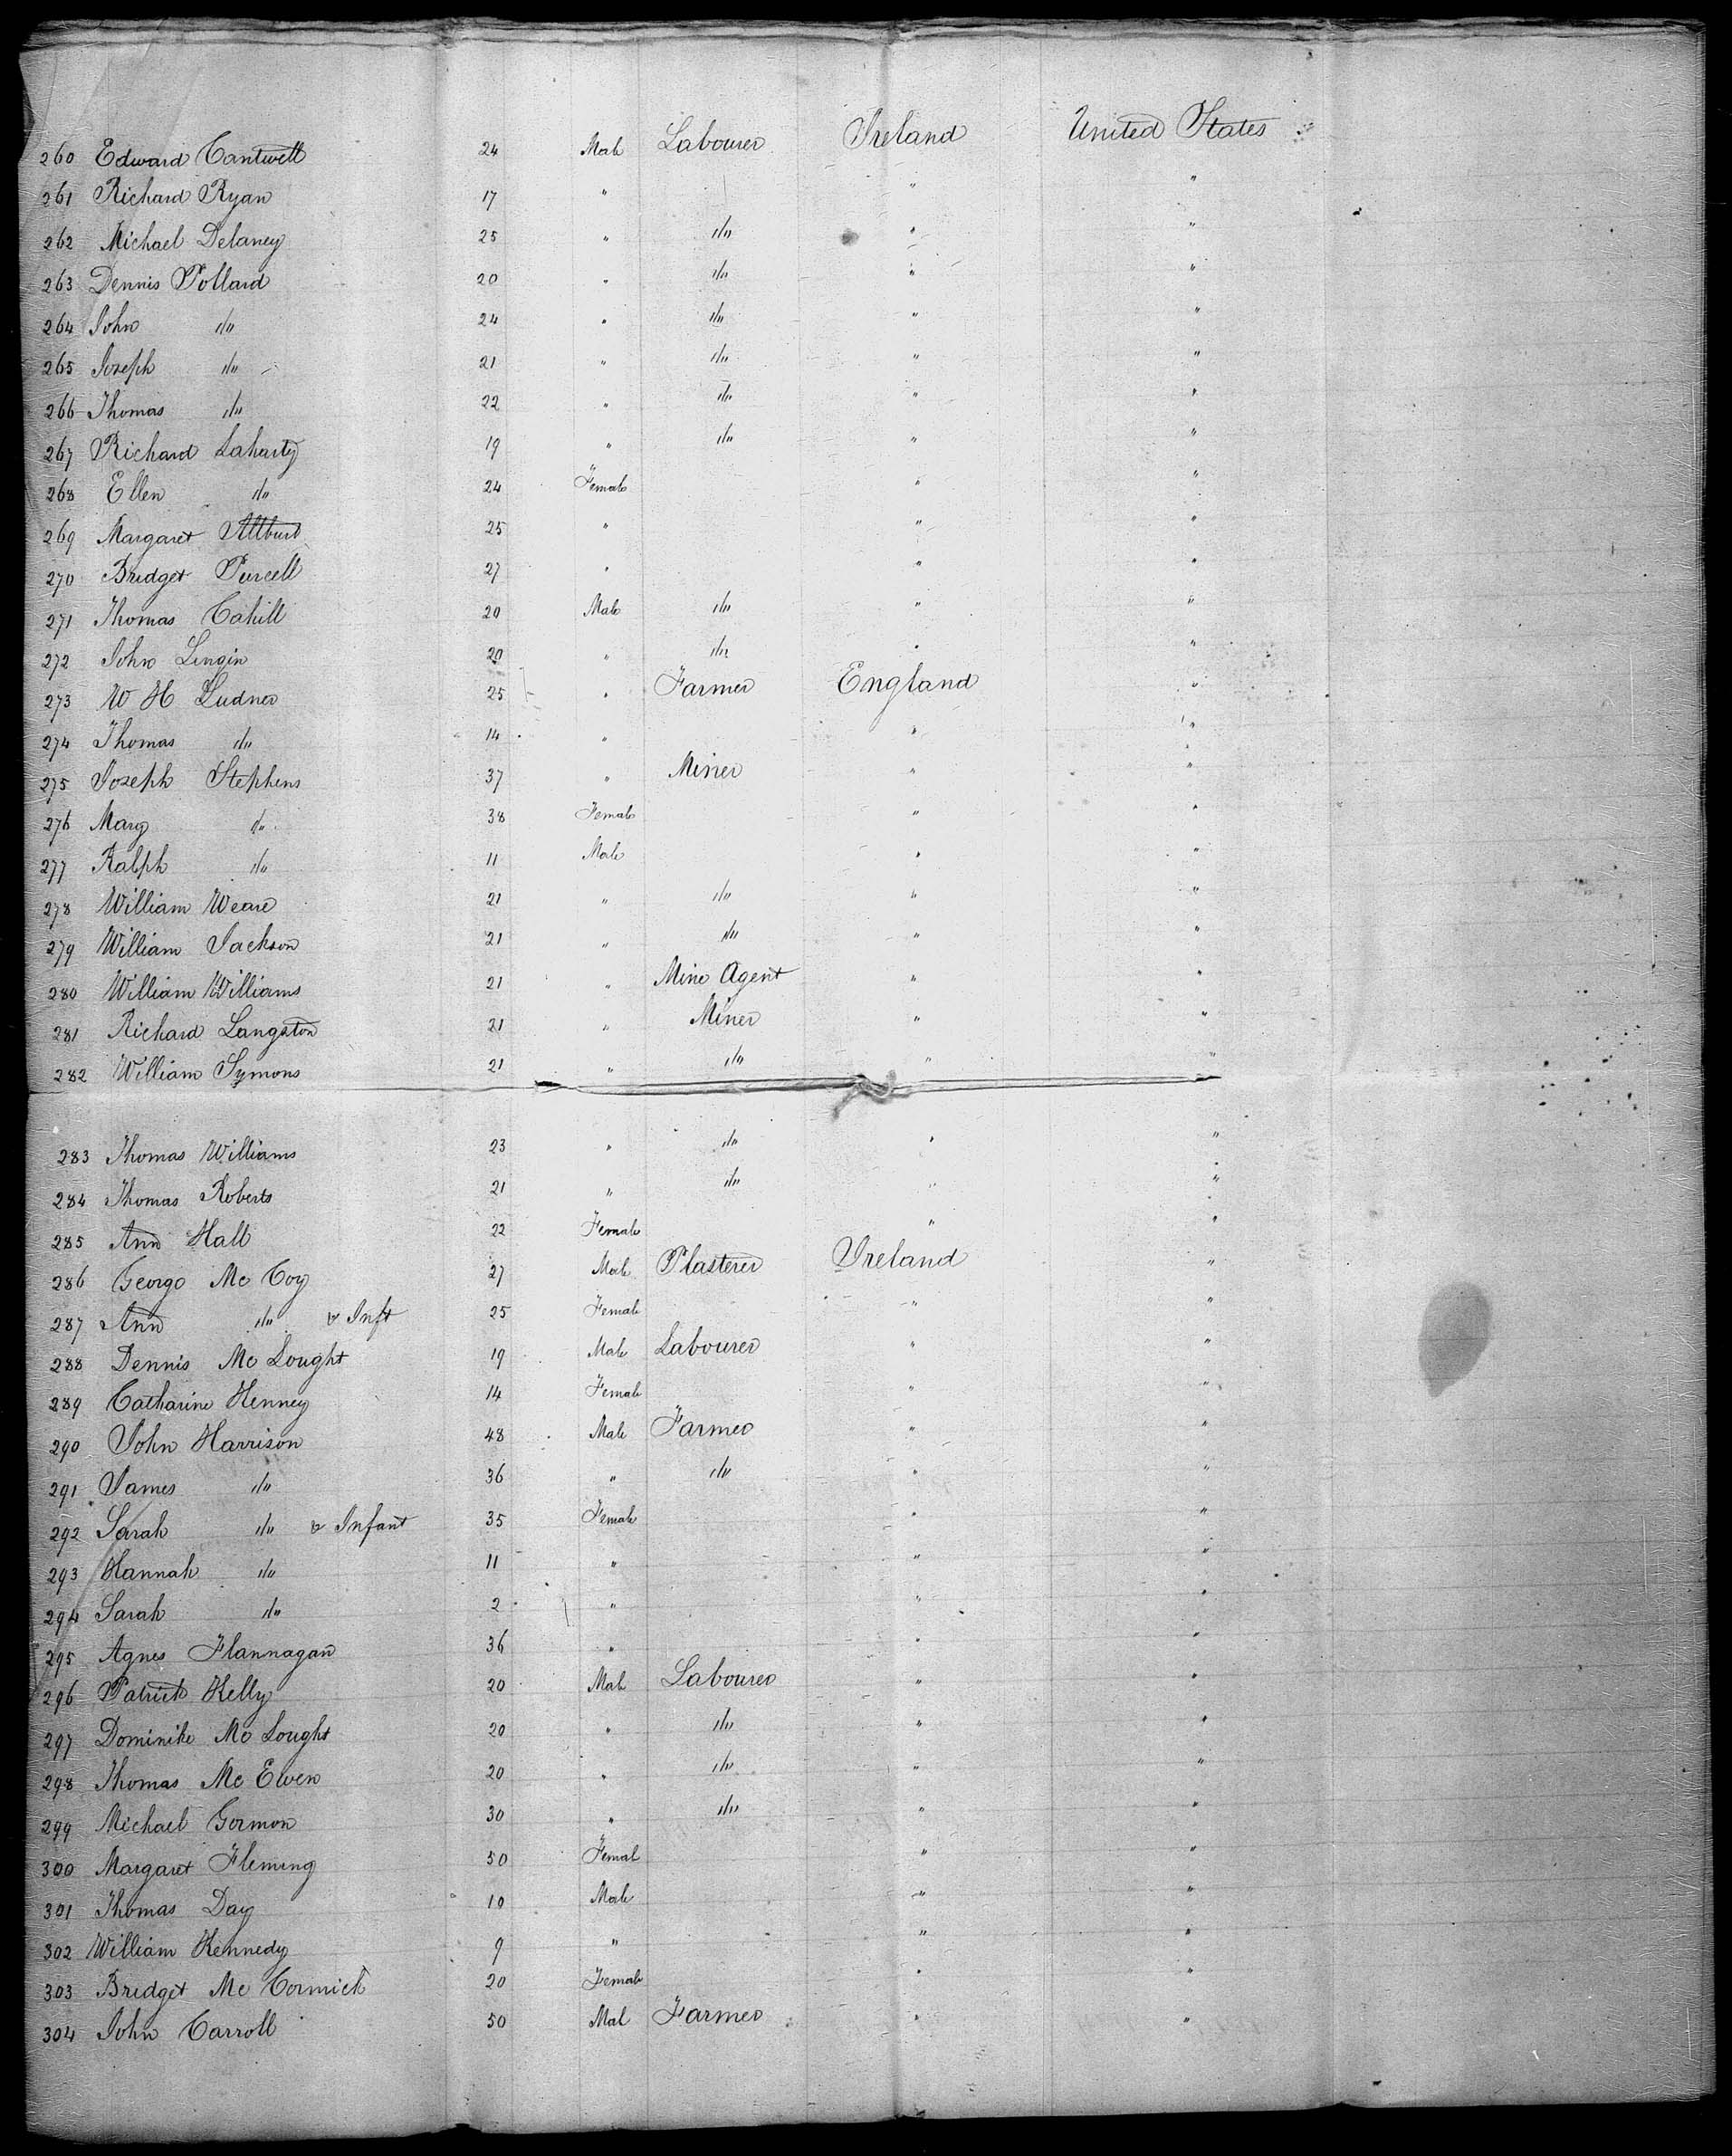 260 Edward Cantwell 24 Male Labourer Ireland United States
261 Richard Ryan 17 " " "
262 Michael Delaney 25 " do " "
263 Dennis Pollard 20 " do " "
264 John do 24 " do " "
265 Joseph do 21 " do " "
266 Thomas do 22 " do " "
267 Richard Laharty 19 " do " "
268 Ellen do 24 Female " "
269 Margaret 25 " " "
270 Bridget Purcell 27 " " "
271 Thomas Cahill 20 Male do " "
272 John Lingin 20 " do " "
273 W H Ludner 25 " Farmer England "
274 Thomas do 14 " " "
275 Joseph Stephens 37 " Miner " "
276 Mary do 38 Female " "
277 Ralph do 11 Male " "
278 William Weare 21 " do " "
279 William Jackson 21 " do " "
280 William Williams 21 " Mine Agent " "
281 Richard Langston 21 " Miner " "
282 William Symons 21 " do " "
283 Thomas Williams 23 " do " "
284 Thomas Roberts 21 " do " "
285 Ann Hall 22 Female " "
286 George Mc Coy 27 Male Plasterer Ireland "
287 Ann do & Inft 25 Female " "
288 Dennis Mc Lought 19 Male Labourer " "
289 Catharine Henney 14 Female " "
290 John Harrison 48 Male Farmer " "
291 James do 36 " do " "
292 Sarah do & Infant 35 Female " "
293 Hannah do 11 " " "
294 Sarah do 2 " " "
295 Agnes Flannagan 36 " " "
296 Patrick Kelly 20 Male Labourer " "
297 Dominike Mc Lought 20 " do " "
298 Thomas Mc Ewen 20 " do " "
299 Michael Gormon 30 " do " "
300 Margaret Fleming 50 Femal " "
301 Thomas Day 10 Male " "
302 William Kennedy 9 " " "
303 Bridget Mc Cormick 20 Female " "
304 John Carroll 50 Mal Farmer " "